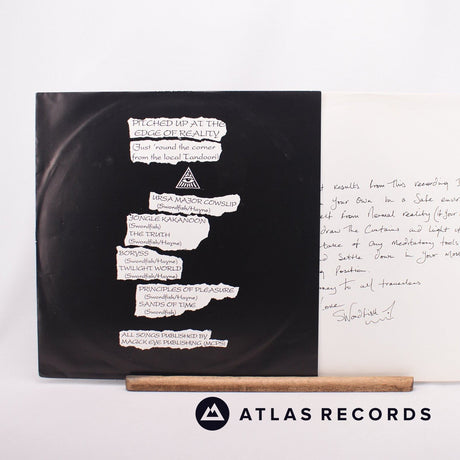 PITCHED UP AT THE
EDGE OF REALITY
(Just 'round the corner
from the local Tandoori)
URSA MAJOR COWSLIP
(Swordfish/Hayne)
JONGLE KAKANOON
(Swordfish)
THE TRUTH
(Swordfish/Hayne)
BORYSS
(Swordfish/Hayne)
TWILIGHT WORLD
(Swordfish/Hayne)
PRINCIPLES OF PLEASURE
(Swordfish/Hayne)
SANDS OF TIME
(Swordfish)
ALL SONGS PUBLISHED BY
MAGICK EYE PUBLISHING (MCPS)
results from this recording
your own in a safe
from Normal reality
draw the Curtains and light up
of any meditatory tools
and Settle down in your
position.
to all travellers
Love
Swordfish
ATLAS RECORDS